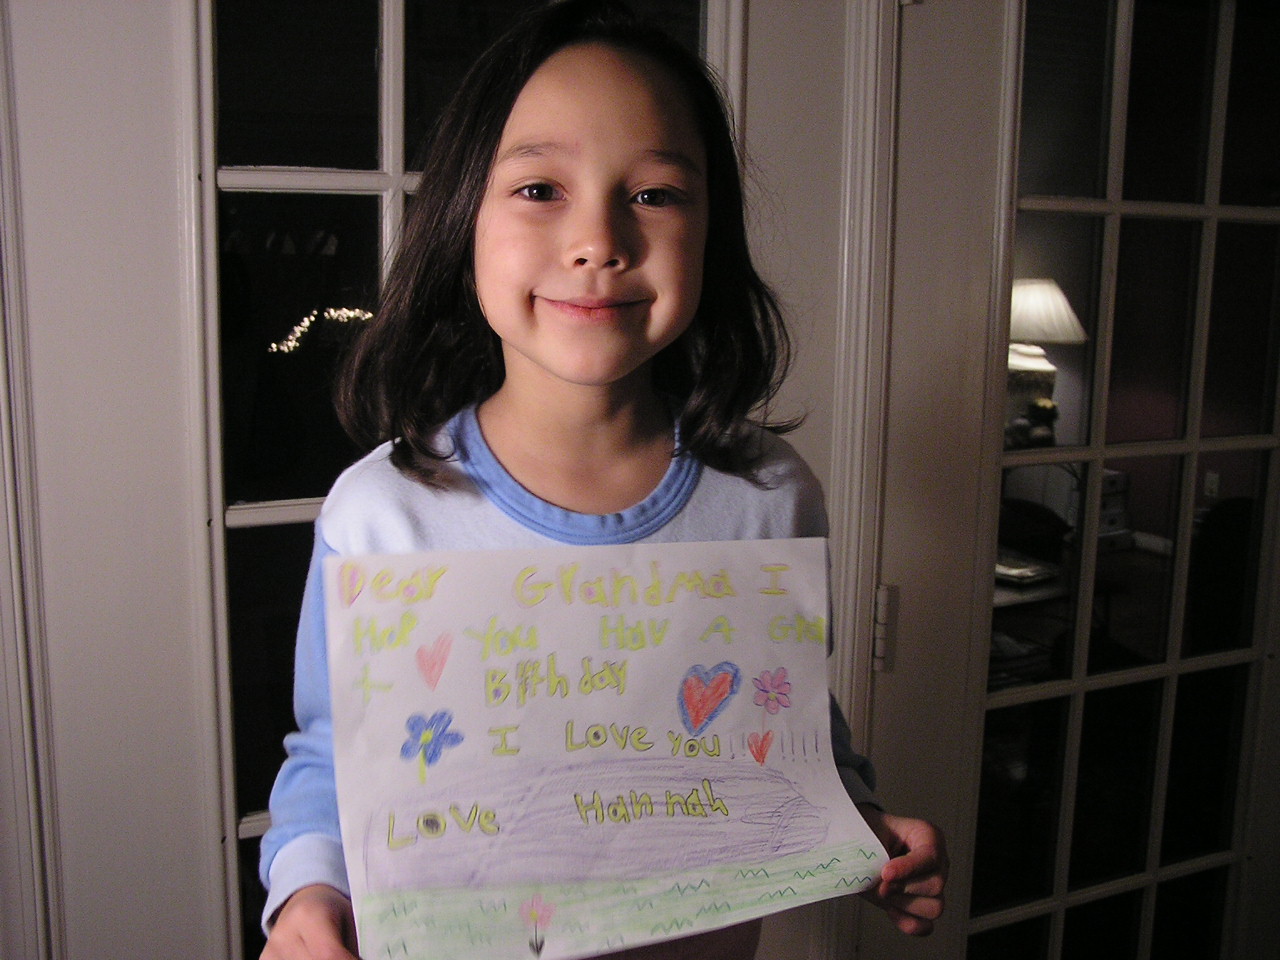 Dear Grandma I
Hop You Hav A Gra
t Birthday
I Love you !!!!!!!
Love Hannah